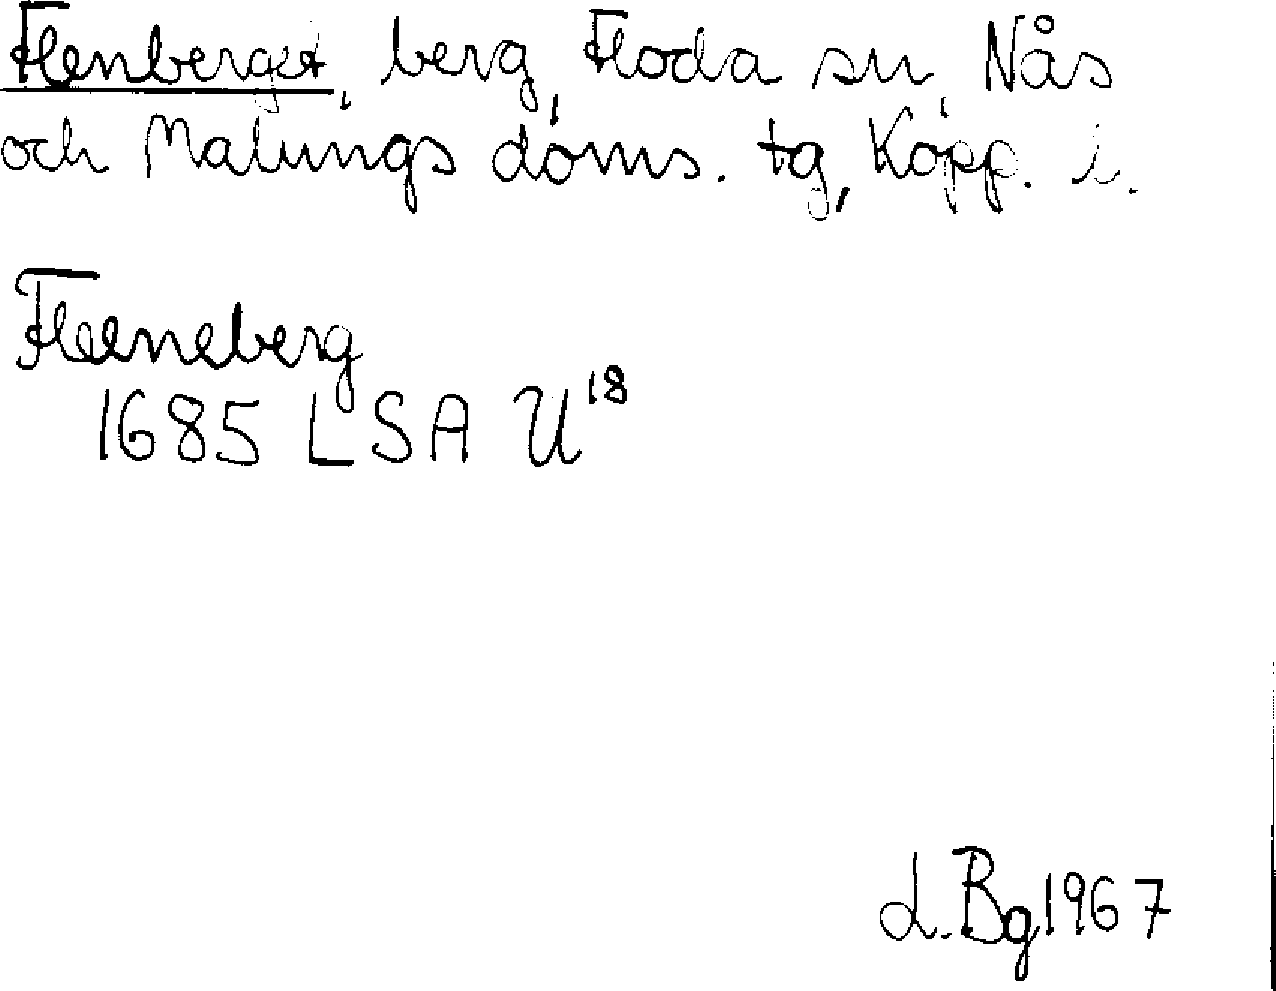 Flenberget, berg, Floda sn, Nås
och Malungs doms. tg, Kopp. l.
Fleeneberg
1685 LSA U18
L. Bg 1967